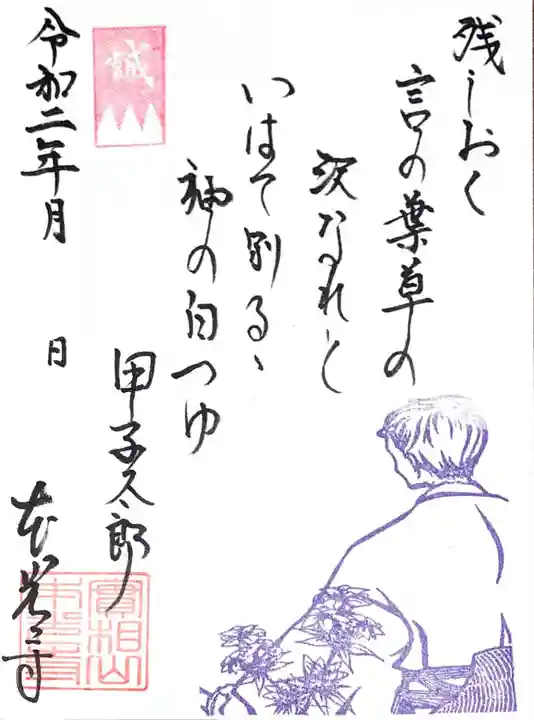 残しおく
言の葉草の
沢なれと
いはて別るゝ
袖の白つゆ
甲子太郎
誠
令和二年月 日
本光寺
實相山
本光寺